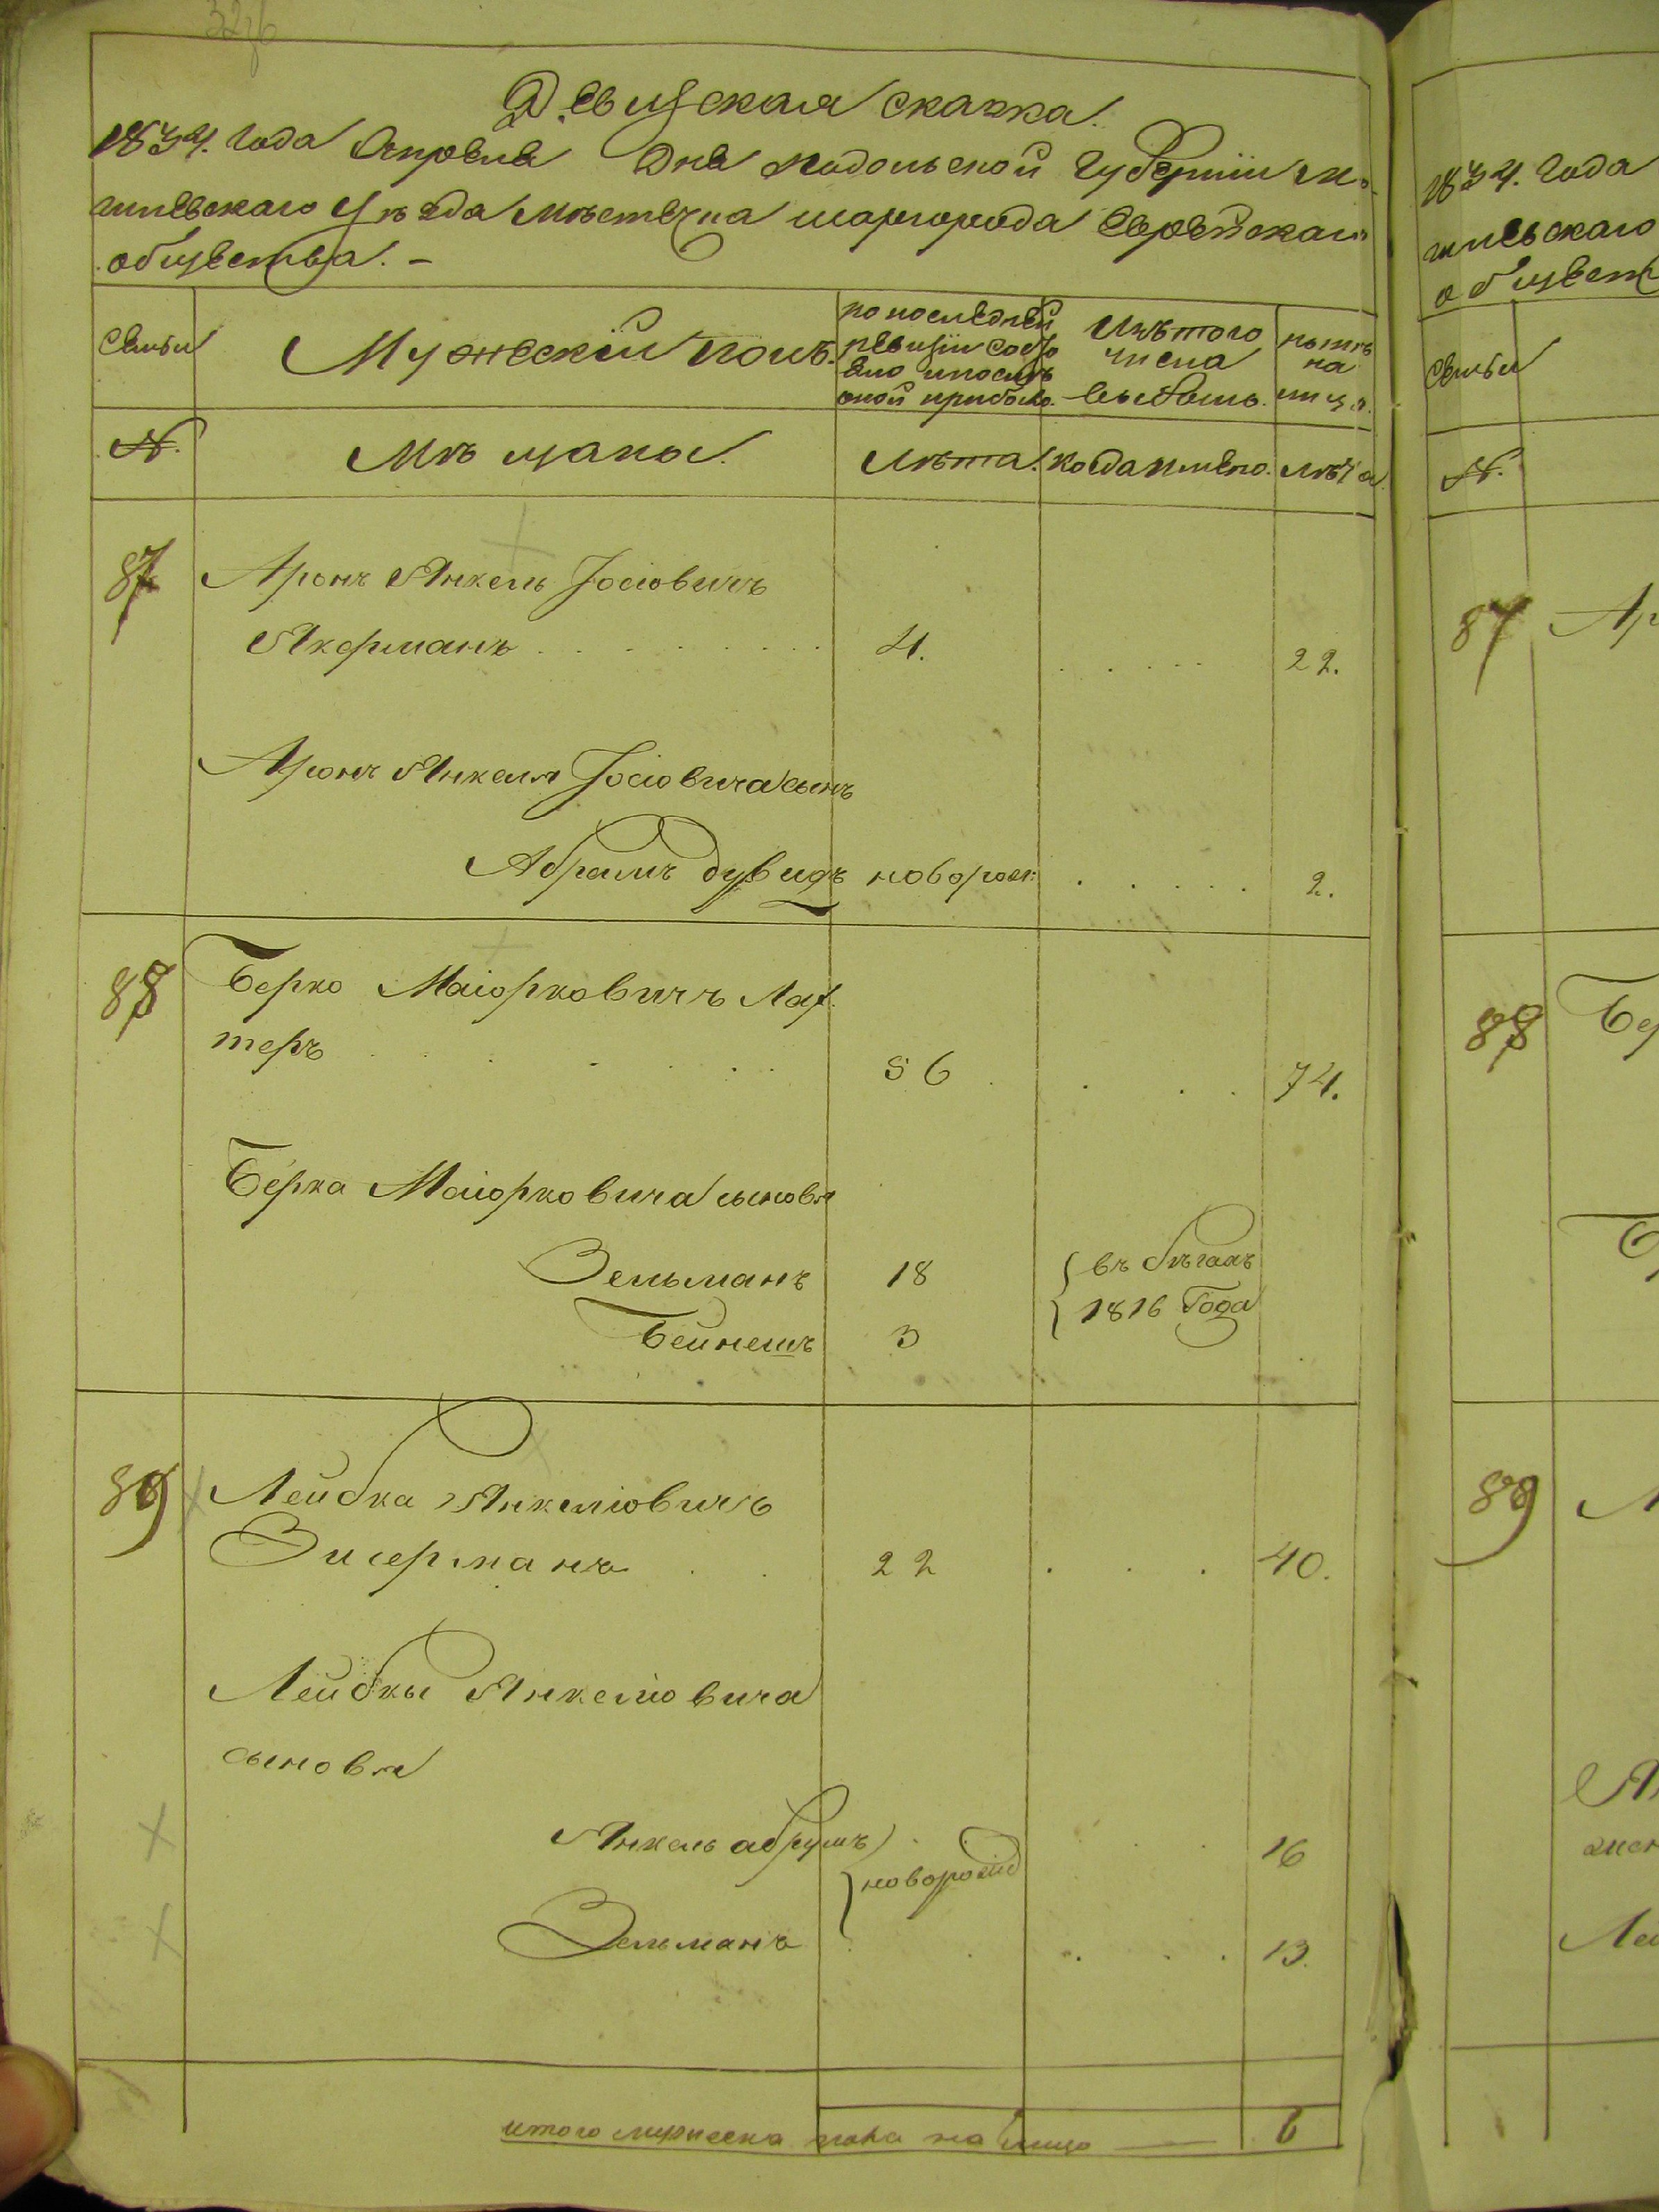 Ревизская сказка.
1834. Года Апреля Дня Подольской Губернии Мо-
гилевскаго Уѣзда Мѣстечка Шаргорода Еврейскаго
общества. -
Семьи
Мужескій полъ.
по последней
ревизіи состо
яло и после
оной прибыло.
Изъ того
числа
выбыло.
ныне
на
лицо.
№.
Мѣщане.
Лѣта.
Когда именно.
Лѣта.
87
Аронъ Янкель Іосіовичъ
Акерманъ . . . . . . . . 4. . . . . . 22.
Аронъ Янкеля Іосіовича сынъ
Абрамъ Дувидъ новорож: . . . . . 2.
88
Берко Маіорковичъ Лах
теръ . . . . . . 56 . . . . 74.
Берка Маіорковича сыновья
Зельманъ 18 въ бѣгахъ
Бейнешъ 3 1816 Года
89
Лейбка Янкеліовичъ
Зисерманъ . . 22 . . . 40.
Лейбки Янкеліовича
сыновья
Янкель Абрумъ . . . 16
новорожд
Зельманъ . . . . 13.
итого мужеска пола на лицо — 6
1834. Года
гилевскаго
общест
Семьи
№.
87 Ар
88 Бе
89